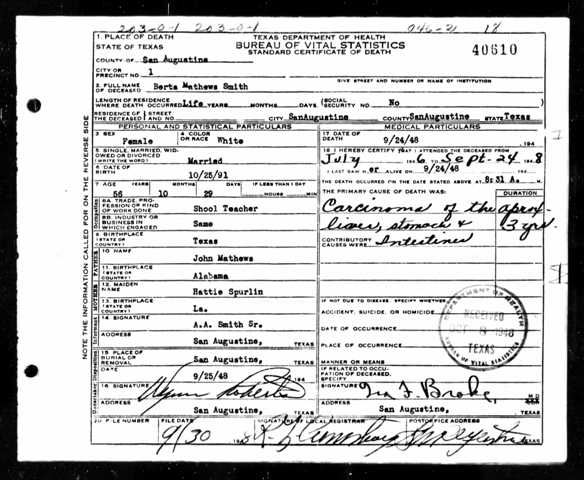 203-0-1 203-0-1 046-21 18
1. PLACE OF DEATH
STATE OF TEXAS
TEXAS DEPARTMENT OF HEALTH
BUREAU OF VITAL STATISTICS
STANDARD CERTIFICATE OF DEATH
40610
COUNTY OF San Augustine
CITY OR PRECINCT NO. 1
GIVE STREET AND NUMBER OR NAME OF INSTITUTION
2. FULL NAME OF DECEASED Berta Mathews Smith
LENGTH OF RESIDENCE WHERE DEATH OCCURRED Life YEARS MONTHS DAYS (SOCIAL SECURITY NO. No
RESIDENCE OF THE DECEASED STREET AND NO. CITY SanAugustine COUNTY SanAugustine STATE Texas
PERSONAL AND STATISTICAL PARTICULARS
MEDICAL PARTICULARS
3. SEX Female
4. COLOR OR RACE White
17. DATE OF DEATH 9/24/48 194
5. SINGLE, MARRIED, WIDOWED OR DIVORCED (WRITE THE WORD) Married
18. I HEREBY CERTIFY THAT I ATTENDED THE DECEASED FROM
July 1946 TO Sept-24 1948
6. DATE OF BIRTH 10/25/91
I LAST SAW H er ALIVE ON 9/24/48
7. AGE 56 YEARS 10 MONTHS 29 DAYS IF LESS THAN 1 DAY HOURS MIN
THE DEATH OCCURRED ON THE DATE STATED ABOVE AT 8:31 A M.
THE PRIMARY CAUSE OF DEATH WAS: DURATION
8A. TRADE, PROFESSION OR KIND OF WORK DONE Shool Teacher
Carcinoma of the aprox
8B. INDUSTRY OR BUSINESS IN WHICH ENGAGED Same
liver, stomach & 3 yrs.
9. BIRTHPLACE (STATE OR COUNTRY) Texas
CONTRIBUTORY CAUSES WERE: Intestines
FATHER
10. NAME John Mathews
11. BIRTHPLACE (STATE OR COUNTRY) Alabama
MOTHER
12. MAIDEN NAME Hattie Spurlin
13. BIRTHPLACE (STATE OR COUNTRY) La.
IF NOT DUE TO DISEASE, SPECIFY WHETHER
ACCIDENT, SUICIDE, OR HOMICIDE
14. SIGNATURE A.A. Smith Sr.
DATE OF OCCURRENCE
ADDRESS San Augustine, TEXAS
PLACE OF OCCURRENCE
DEPARTMENT OF HEALTH
RECEIVED
OCT 8 1948
TEXAS
BUREAU OF VITAL STATISTICS
15. PLACE OF BURIAL OR REMOVAL San Augustine, TEXAS
MANNER OR MEANS
DATE 9/25/48 194
IF RELATED TO OCCUPATION OF DECEASED, SPECIFY
16. SIGNATURE Wynn Roberts
SIGNATURE M.D.
ADDRESS San Augustine, TEXAS
ADDRESS San Augustine, TEXAS
20. FILE NUMBER FILE DATE SIGNATURE OF LOCAL REGISTRAR POSTOFFICE ADDRESS
9/30 1948
NOTE THE INFORMATION CALLED FOR ON THE REVERSE SIDE